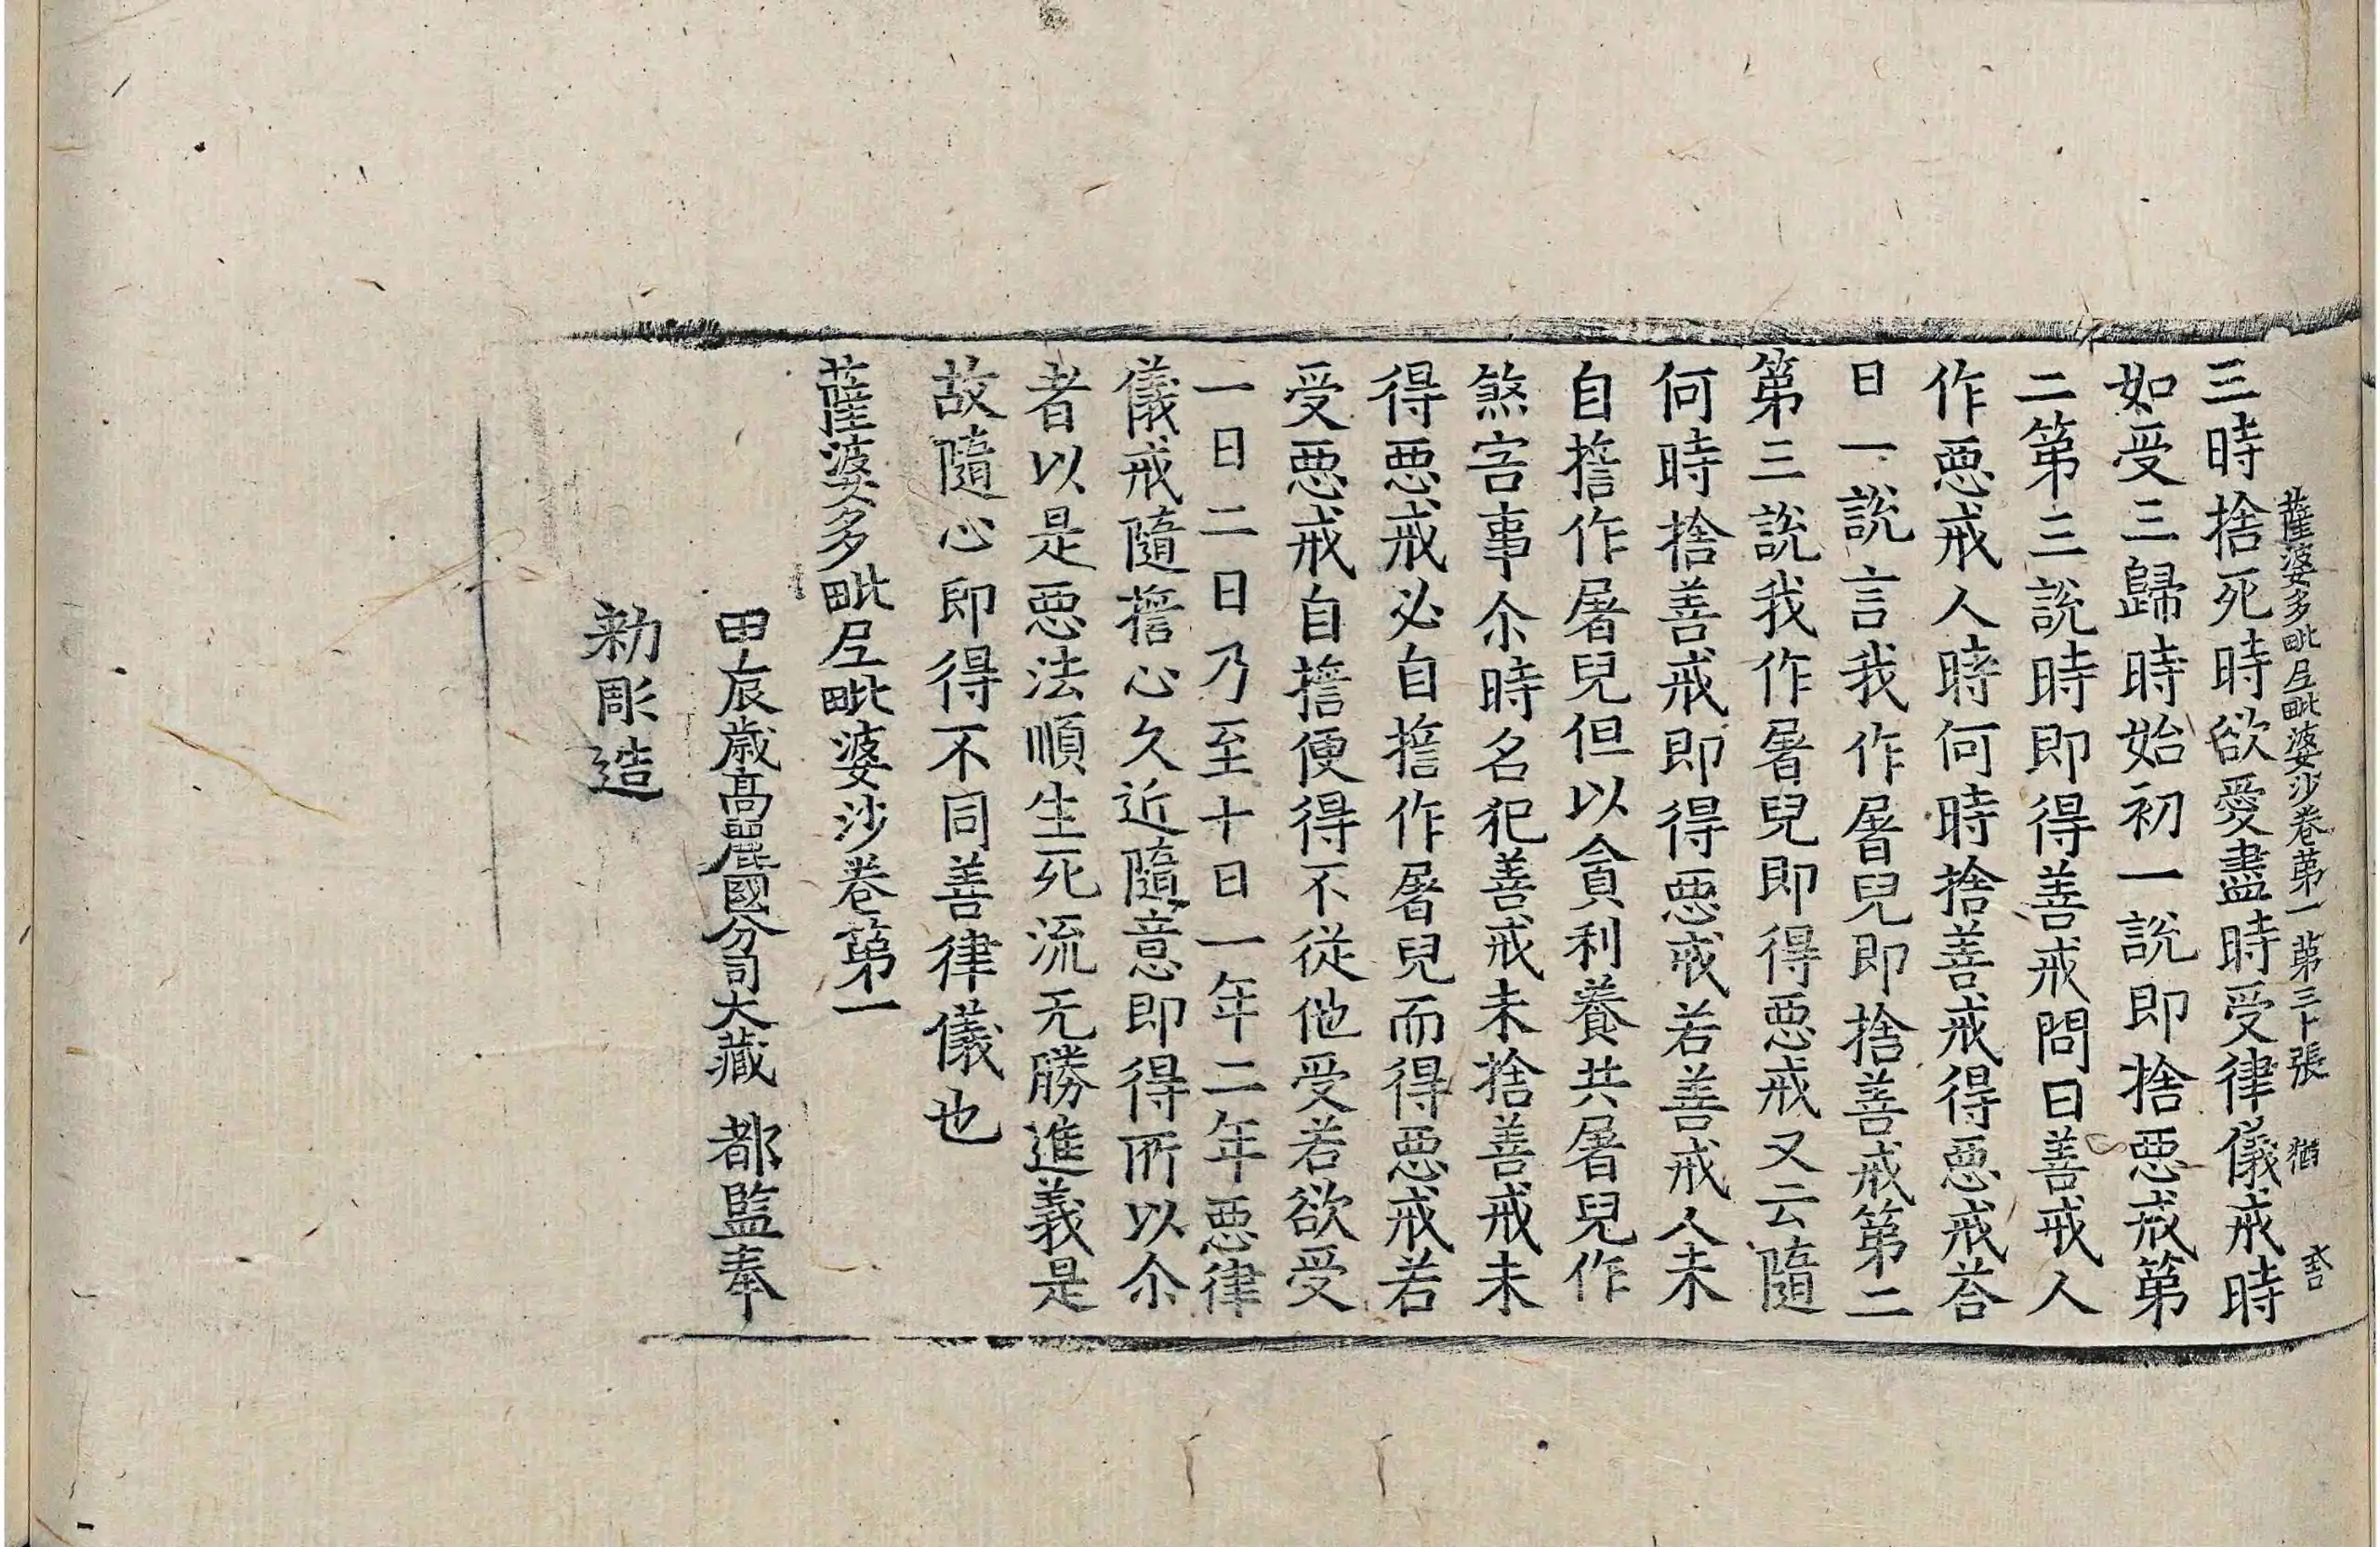 薩婆多毗尼毗婆沙卷第一 第三十張 猶
三時捨死時欲愛盡時受律儀戒時
如受三歸時始初一說即捨惡戒第
二第三說時即得善戒問曰善戒人
作惡戒人時何時捨善戒得惡戒荅
曰一說言我作屠兒即捨善戒第二
第三說我作屠兒即得惡戒又云隨
何時捨善戒即得惡戒若善戒人未
自擔作屠兒但以貪利養共屠兒作
煞害事尒時名犯善戒未捨善戒未
得惡戒必自擔作屠兒而得惡戒若
受惡戒自擔便得不從他受若欲受
一日二日乃至十日一年二年惡律
儀戒隨擔心久近隨意即得所以尒
者以是惡法順生死流无勝進義是
故隨心即得不同善律儀也
薩婆多毗尼毗婆沙卷第一
甲辰歲高麗國分司大藏都監奉
勑彫造